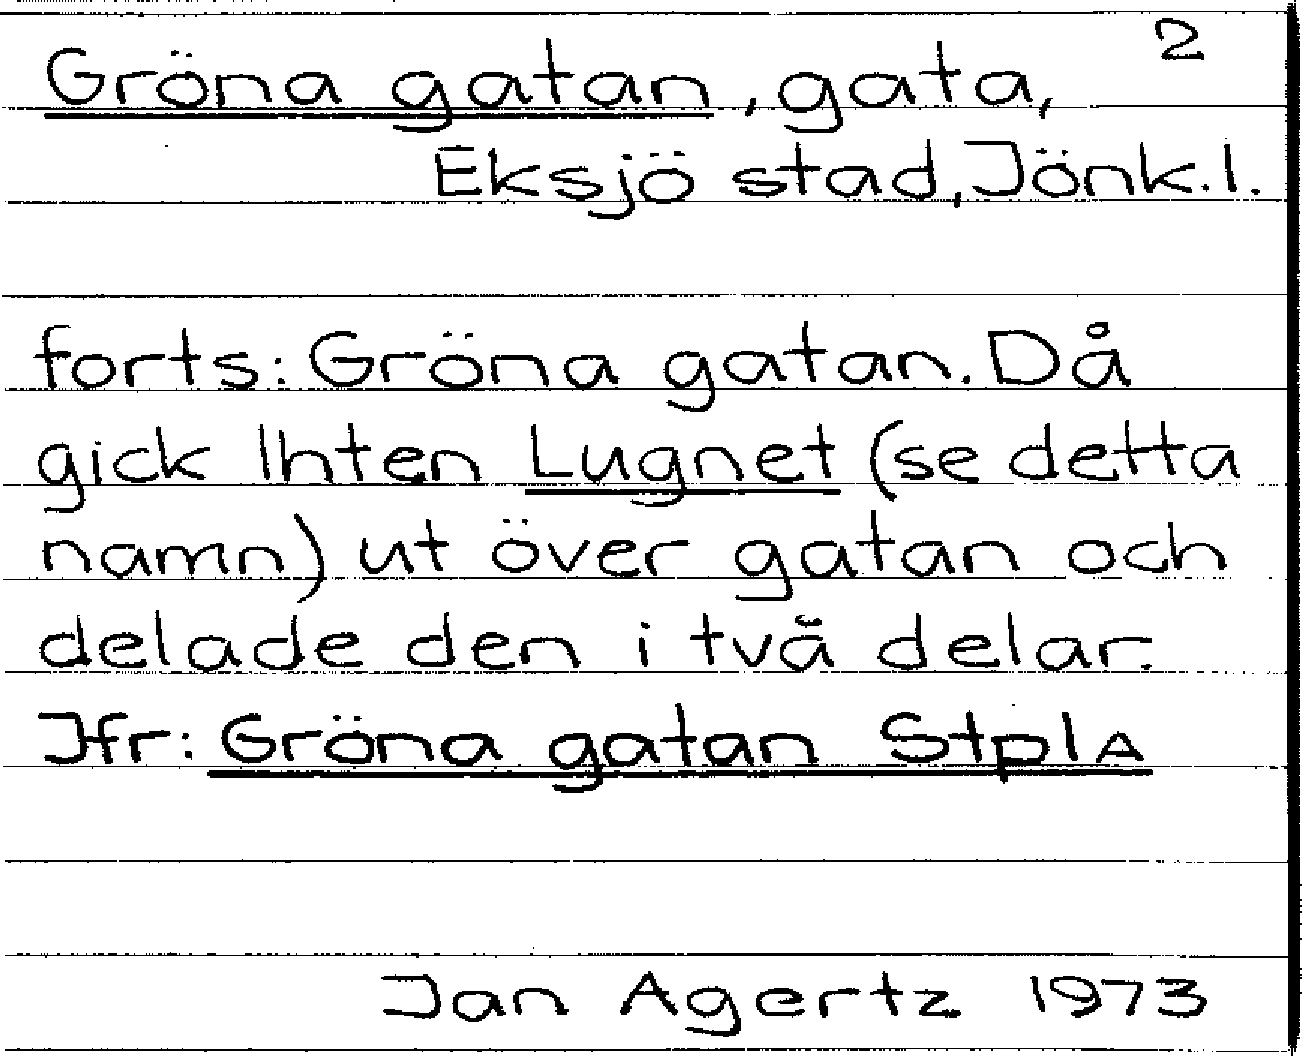 2
Gröna gatan, gata,
Eksjö stad, Jönk.l.
forts: Gröna gatan. Då
gick Ihten Lugnet (se detta
namn) ut över gatan och
delade den i två delar.
Jfr: Gröna gatan StplA
Jan Agertz 1973